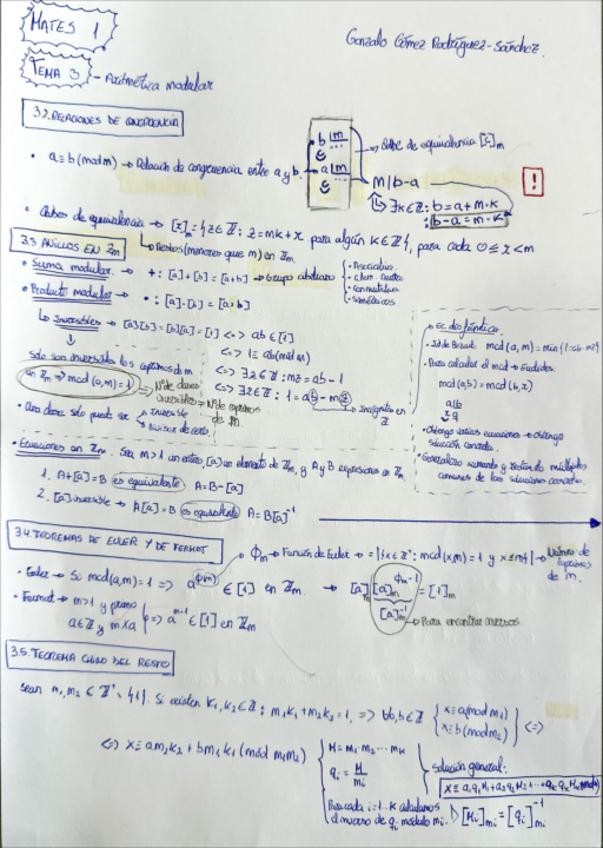 MATES 1
Gonzalo Gómez Rodríguez-Sánchez.
TEMA 3 - Aritmética modular
3.2. RELACIONES DE CONGRUENCIA
b | m
a | m
→ Clase de equivalencia [c]m
• a≡b (mod m) → Relación de congruencia entre a y b.
m | b-a
!
↳ ∃k∈ℤ: b = a + m·k
b-a = m·k
• Clases de equivalencia → [x]m = {z∈ℤ: z = mk + x para algún k∈ℤ}, para cada 0≤x<m
↳ Restos (menores que m) en ℤm.
3.3 ANILLOS EN ℤm
• Suma modular → +: [a]+[b] = [a+b] → Grupo abeliano
• Asociativo
• Elem. neutro
• Conmutativa
• Simétricos
• Producto modular → •: [a]·[b] = [a·b]
↳ Inversibles → [a][b]=[b][a]=[1] <=> ab∈[1]
<=> 1≡ab (mod m)
<=> ∃z∈ℤ: mz = ab - 1
<=> ∃z∈ℤ: 1 = ab - mz → Incógnitas en ℤ
Solo son inversibles los coprimos de m
en ℤm => mcd (a,m) = 1
=> Nº de clases inversibles = Nº de coprimos de m.
• Una clase solo puede ser
Inversible
Divisor de cero.
→ Ec. diofántica.
• Id. de Bezout mcd (a,m) = min
• Para calcular el mcd → Euclides:
mcd (a,b) = mcd (b,r)
• Obtengo varias ecuaciones → Obtengo
solución concreta.
• Generalizo sumando y restando múltiplos
comunes de las soluciones concretas.
• Ecuaciones en ℤm. Sea m>1 un entero, [a] un elemento de ℤm, y A y B expresiones en ℤm.
1. A+[a]=B es equivalente A=B-[a]
2. [a] inversible → A[a]=B es equivalente A=B[a]⁻¹
3.4. TEOREMAS DE EULER Y DE FERMAT
ϕm → Función de Euler → = |{x∈ℤ⁺: mcd (x,m) = 1 y x≤m}| → Número de coprimos de m.
• Euler → Si mcd (a,m) = 1 => a^ϕ(m) ∈ [1] en ℤm. → [a]m [a]m^ϕm-1 = [1]m
[a]m⁻¹
→ Para encontrar inversos
• Fermat → m>1 y primo
a∈ℤ y m∤a => a^m-1 ∈ [1] en ℤm
3.5. TEOREMA CHINO DEL RESTO
Sean m₁, m₂ ∈ ℤ⁺ - {1}. Si existen k₁, k₂ ∈ ℤ: m₁k₁ + m₂k₂ = 1, => ∀a,b∈ℤ { x≡a (mod m₁) x≡b (mod m₂) } <=>
<=> x≡ am₂k₂ + bm₁k₁ (mód m₁m₂)
M = m₁·m₂···mk
qi = M/mi
Para cada i=1..k calculamos
el inverso de qi módulo mi.
Solución general:
x≡a₁q₁M₁+a₂q₂M₂+...+akqkMk (mod M)
[Mi]mi = [qi]mi⁻¹